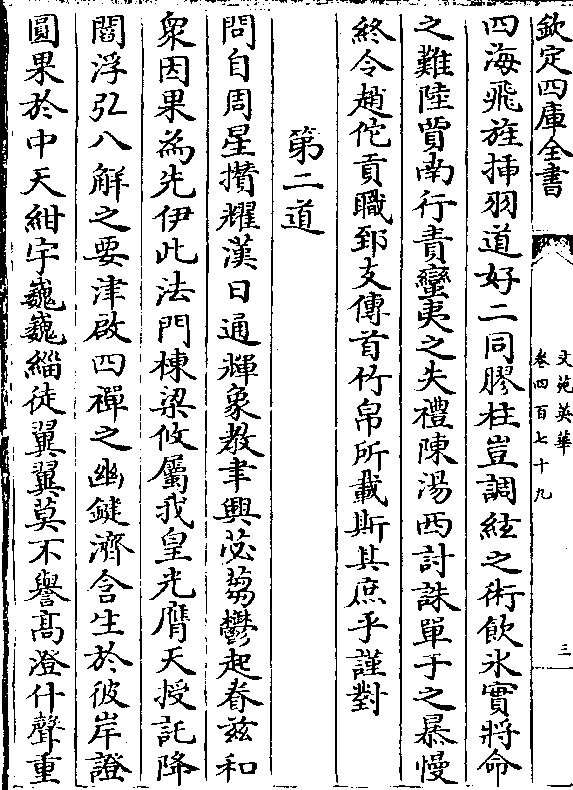 欽定四庫全書
文苑英華
卷四百七十九
三
四海飛旌揷羽道好二同膠柱豈調絃之術飲氷實將命
之難陸賈南行責蠻夷之失禮陳湯西討誅單于之㬥慢
終令趙佗貢職郅支傳首竹帛所載斯其庶乎謹對
第二道
問自周星攢耀漢日通輝象教聿興苾蒭鬱起眷兹和
衆因果為先伊此法門棟梁攸屬我皇光膺天授託降
閻浮弘八解之要津啟四禪之幽鍵濟含生於彼岸證
圓果於中天紺宇巍巍緇徒翼翼莫不譽高澄什聲重